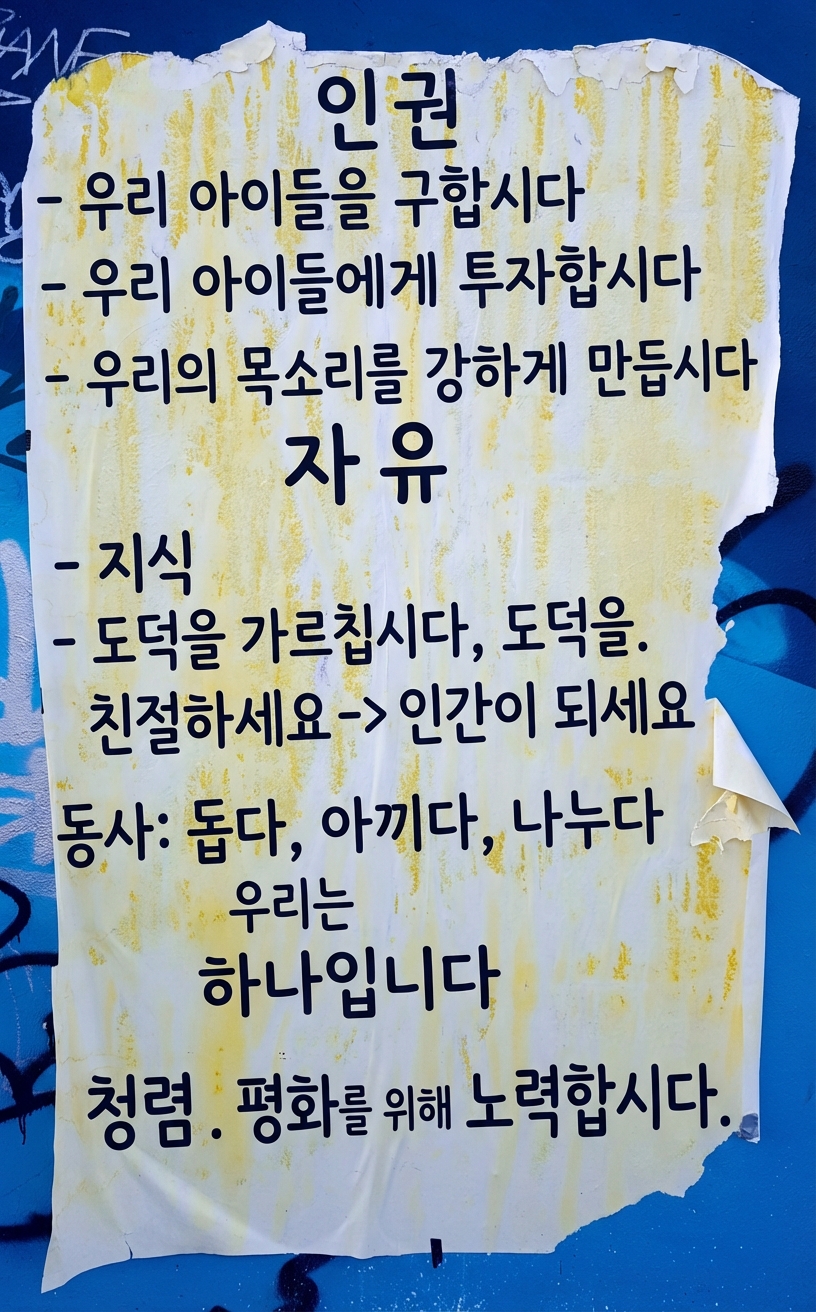 인권
- 우리 아이들을 구합시다
- 우리 아이들에게 투자합시다
- 우리의 목소리를 강하게 만듭시다
자유
- 지식
- 도덕을 가르칩시다, 도덕을.
친절하세요 -> 인간이 되세요
동사: 돕다, 아끼다, 나누다
우리는
하나입니다
청렴. 평화를 위해 노력합시다.